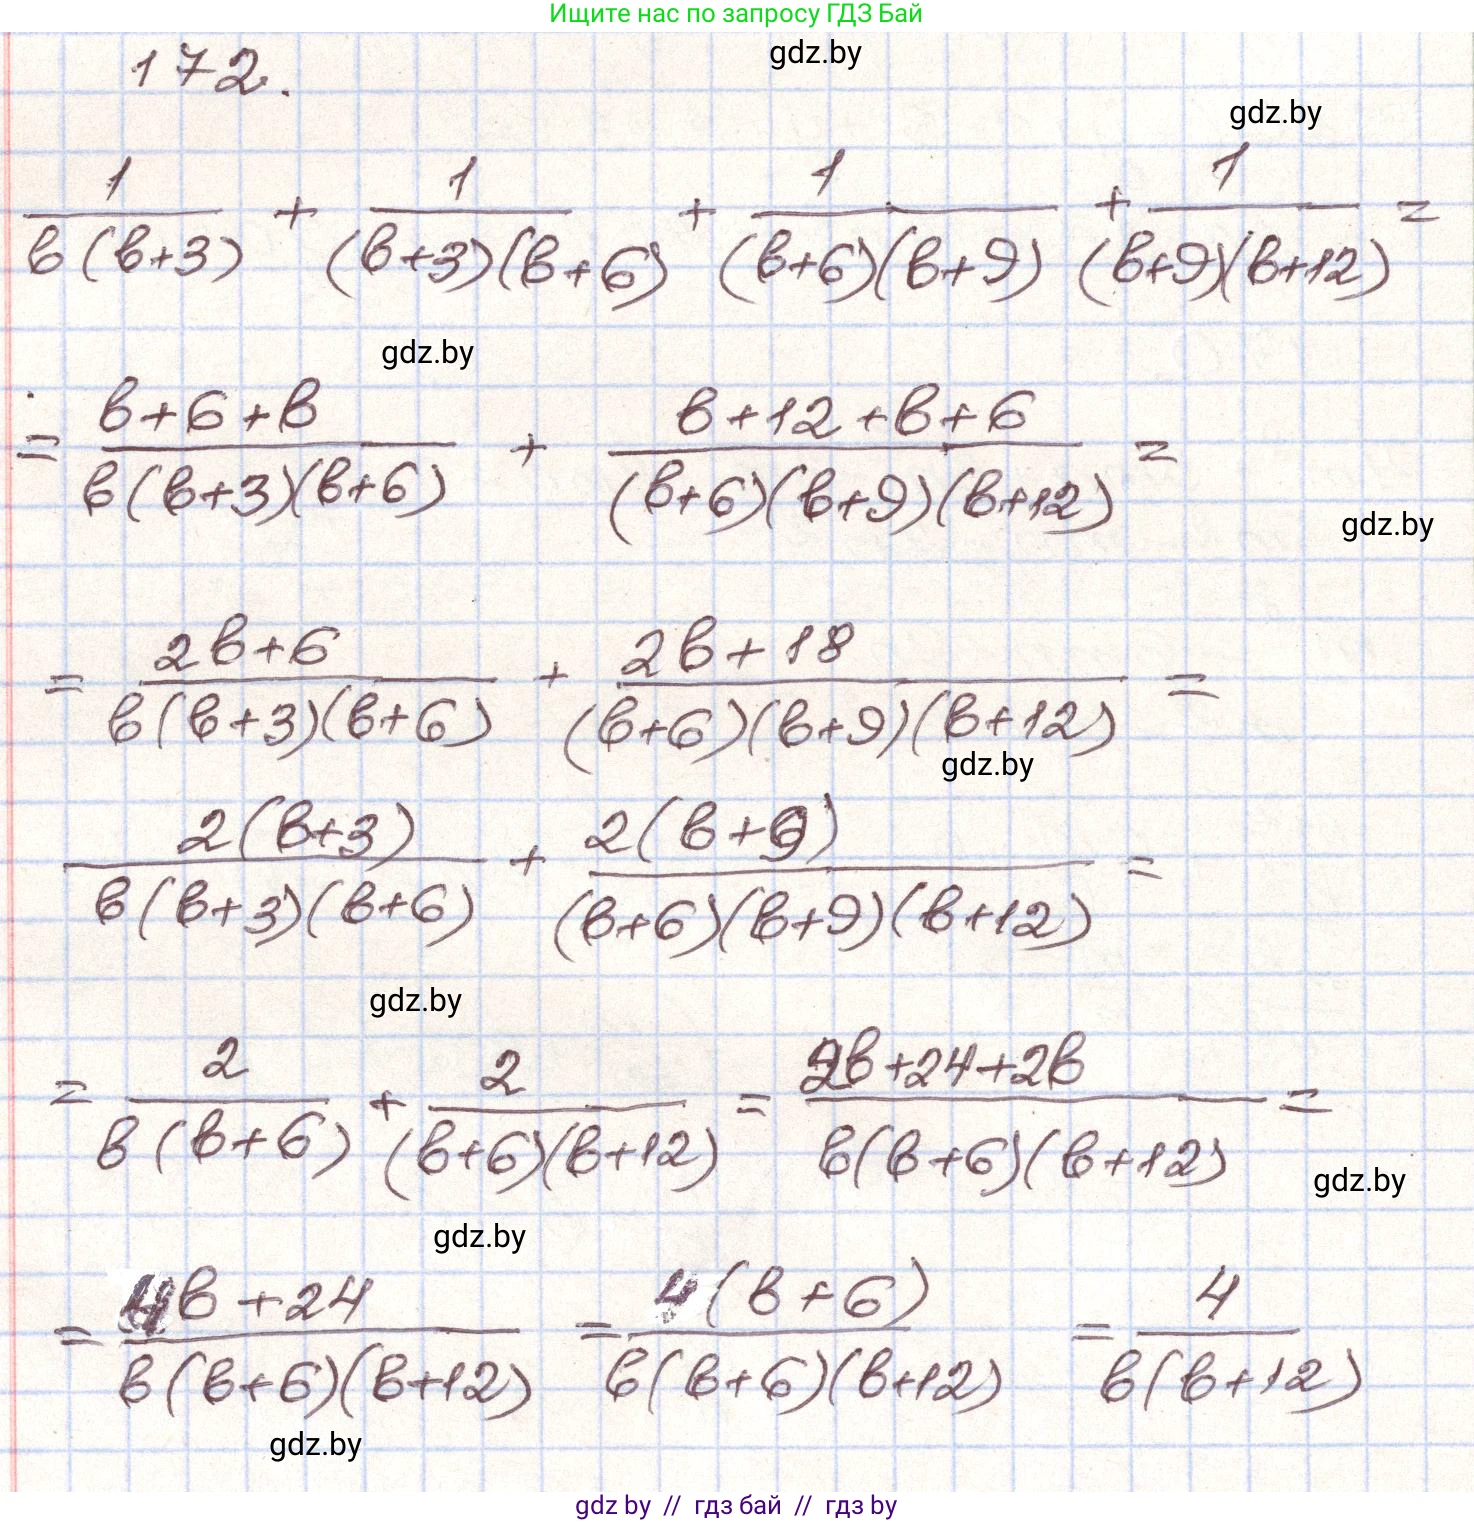 Ищите нас по запросу ГДЗ Бай
gdz.by
172.
gdz.by
1/(в(в+3)) + 1/((в+3)(в+6)) + 1/((в+6)(в+9)) + 1/((в+9)(в+12)) =
gdz.by
= (в+6+в)/(в(в+3)(в+6)) + (в+12+в+6)/((в+6)(в+9)(в+12)) =
gdz.by
= (2в+6)/(в(в+3)(в+6)) + (2в+18)/((в+6)(в+9)(в+12)) =
gdz.by
2(в+3)/(в(в+3)(в+6)) + 2(в+9)/((в+6)(в+9)(в+12)) =
gdz.by
= 2/(в(в+6)) + 2/((в+6)(в+12)) = (2в+24+2в)/(в(в+6)(в+12)) =
gdz.by
gdz.by
= (4в+24)/(в(в+6)(в+12)) = 4(в+6)/(в(в+6)(в+12)) = 4/(в(в+12))
gdz.by
gdz by // гдз бай // гдз by